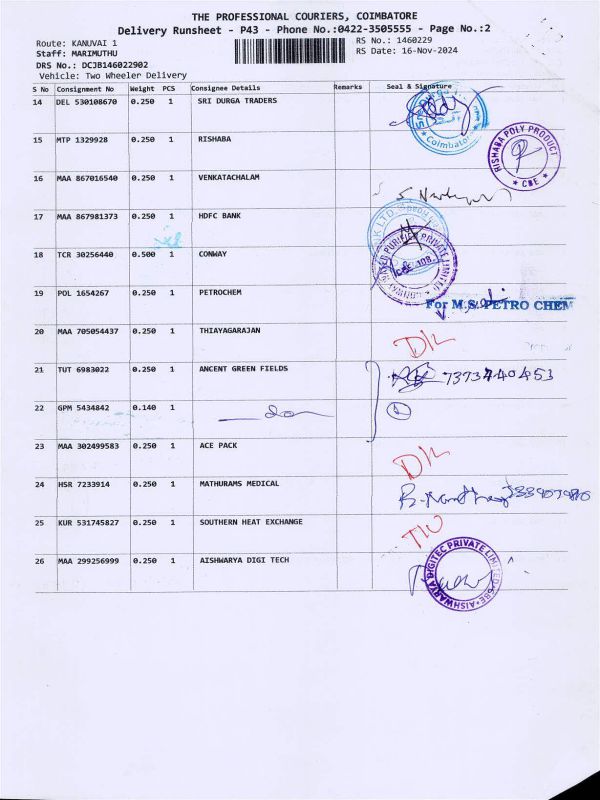 THE PROFESSIONAL COURIERS, COIMBATORE
Delivery Runsheet - P43 - Phone No.:0422-3505555 - Page No.:2
Route: KANUVAI 1 RS No.: 1460229
Staff: MARIMUTHU RS Date: 16-Nov-2024
DRS No.: DCJB146022902
Vehicle: Two Wheeler Delivery
S No Consignment No Weight PCS Consignee Details Remarks Seal & Signature
14 DEL 530108670 0.250 1 SRI DURGA TRADERS
Coimbatore
15 MTP 1329928 0.250 1 RISHABA
RISHABA POLY PRODUCT
* CBE *
16 MAA 867016540 0.250 1 VENKATACHALAM
17 MAA 867981373 0.250 1 HDFC BANK
18 TCR 30256440 0.500 1 CONWAY
PURIFIER PRIVATE LIMITED
19 POL 1654267 0.250 1 PETROCHEM
For M.S. PETRO CHEM
20 MAA 705054437 0.250 1 THIAYAGARAJAN
DL
21 TUT 6983022 0.250 1 ANCENT GREEN FIELDS
7373440453
22 GPM 5434842 0.140 1
23 MAA 302499583 0.250 1 ACE PACK
DL
24 HSR 7233914 0.250 1 MATHURAMS MEDICAL
25 KUR 531745827 0.250 1 SOUTHERN HEAT EXCHANGE
26 MAA 299256999 0.250 1 AISHWARYA DIGI TECH
AISHWARYA DIGITEC PRIVATE LIMITED